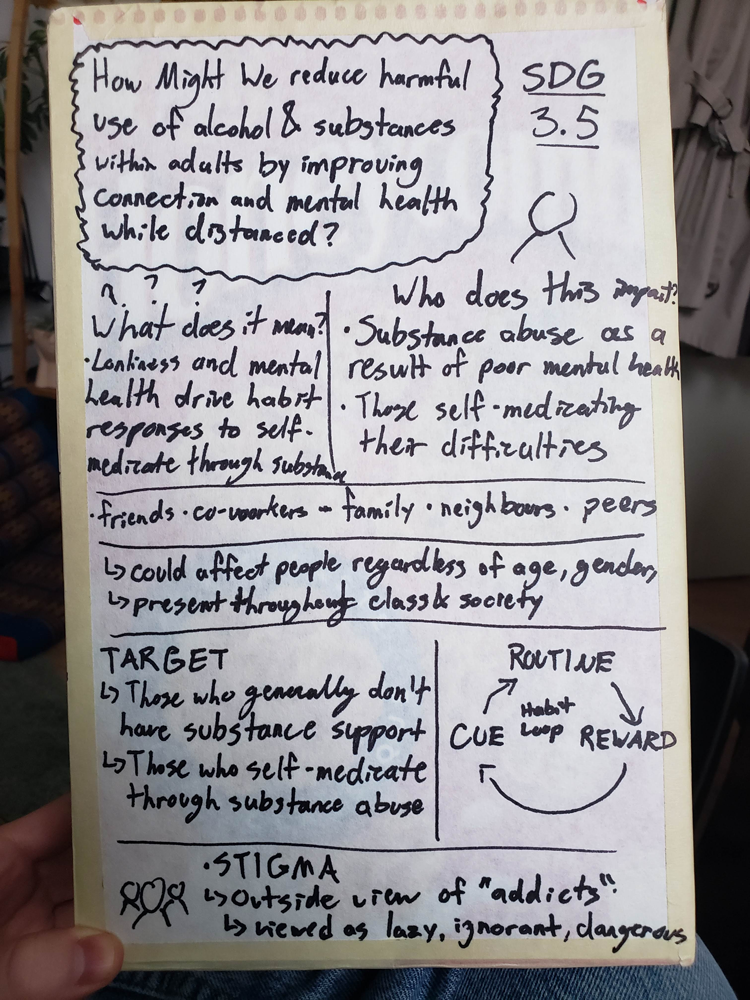 How Might We reduce harmful
use of alcohol & substances
within adults by improving
connection and mental health
while distanced?
SDG
3.5
? ? ?
What does it mean?
· Lonliness and mental
health drive habit
responses to self-
medicate through substance
Who does this impact?
· Substance abuse as a
result of poor mental health
· Those self-medicating
their difficulties
· friends · co-workers - family · neighbours · peers
↳ could affect people regardless of age, gender,
↳ present throughout class & society
TARGET
↳ Those who generally don't
have substance support
↳ Those who self-medicate
through substance abuse
ROUTINE
CUE
Habit
Loop
REWARD
· STIGMA
↳ Outside view of "addicts".
↳ viewed as lazy, ignorant, dangerous